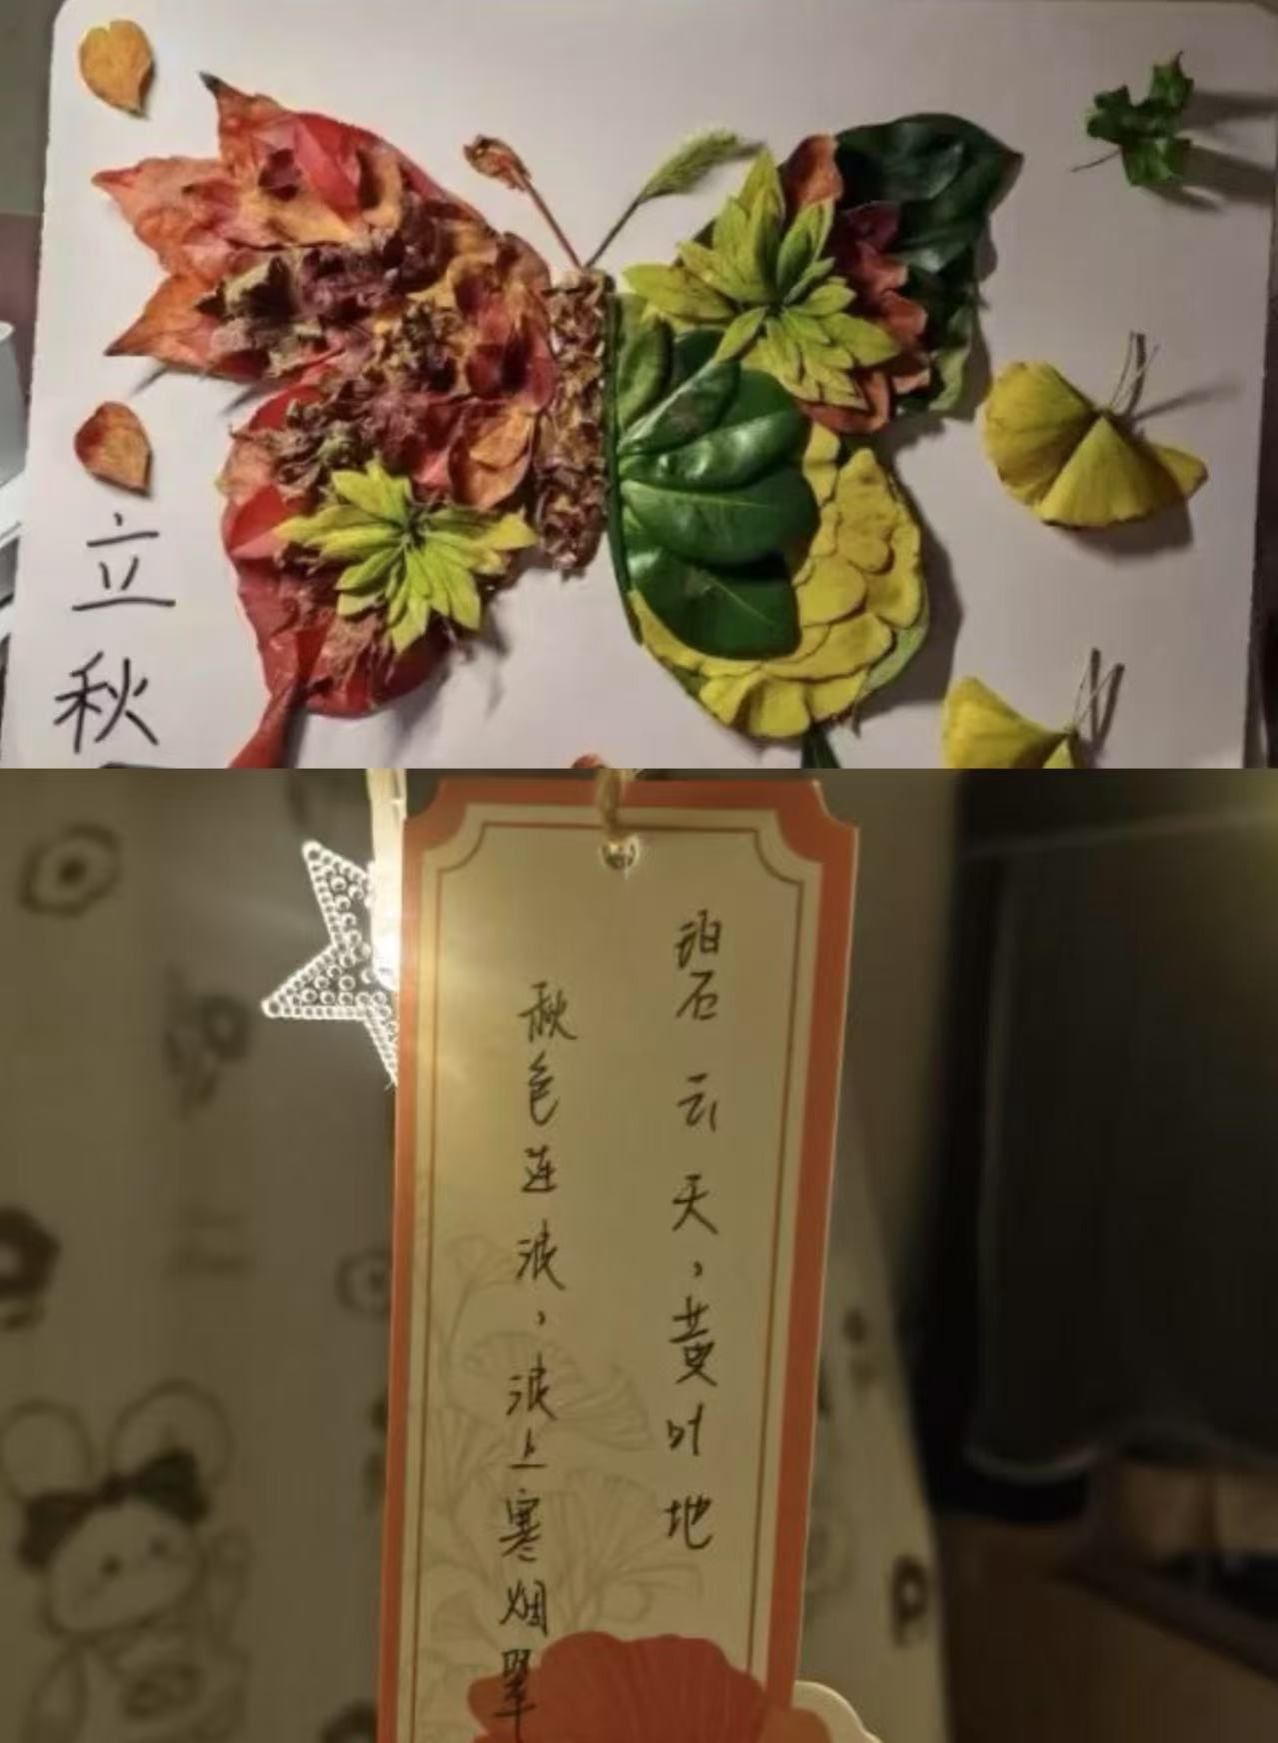 立秋
碧云天，黄叶地
秋色连波，波上寒烟翠